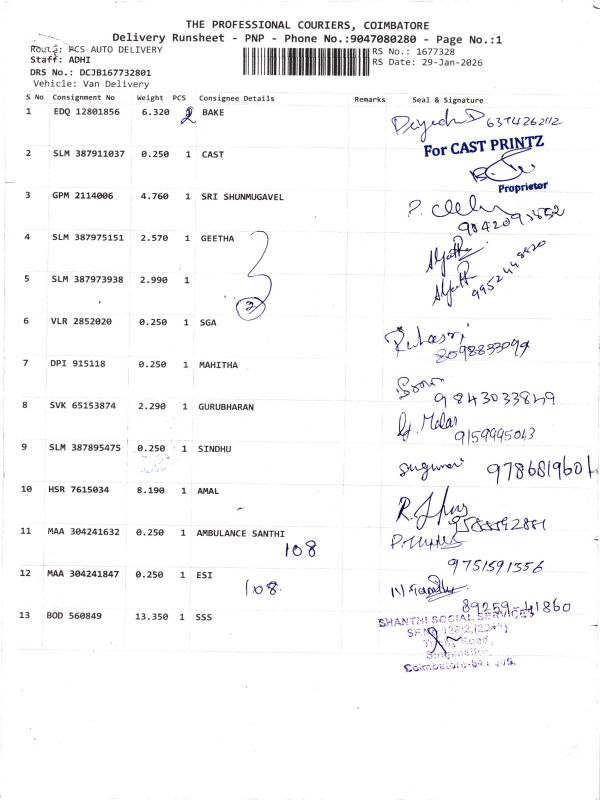 THE PROFESSIONAL COURIERS, COIMBATORE
Delivery Runsheet - PNP - Phone No.:9047080280 - Page No.:1
Route: PCS AUTO DELIVERY
Staff: ADHI
DRS No.: DCJB167732801
Vehicle: Van Delivery
RS No.: 1677328
RS Date: 29-Jan-2026
S No Consignment No Weight PCS Consignee Details Remarks Seal & Signature
1 EDQ 12801856 6.320 2 BAKE
2 SLM 387911037 0.250 1 CAST
For CAST PRINTZ
Proprietor
3 GPM 2114006 4.760 1 SRI SHUNMUGAVEL
4 SLM 387975151 2.570 1 GEETHA
5 SLM 387973938 2.990 1
2
6 VLR 2852020 0.250 1 SGA
8098833094
7 DPI 915118 0.250 1 MAHITHA
9843033849
8 SVK 65153874 2.290 1 GURUBHARAN
9159995043
9 SLM 387895475 0.250 1 SINDHU
9786819601
10 HSR 7615034 8.190 1 AMAL
11 MAA 304241632 0.250 1 AMBULANCE SANTHI
108
9751591356
12 MAA 304241847 0.250 1 ESI
108.
89259-41860
13 BOD 560849 13.350 1 SSS
SHANTHI SOCIAL SERVICES
Road,
Singanallur,